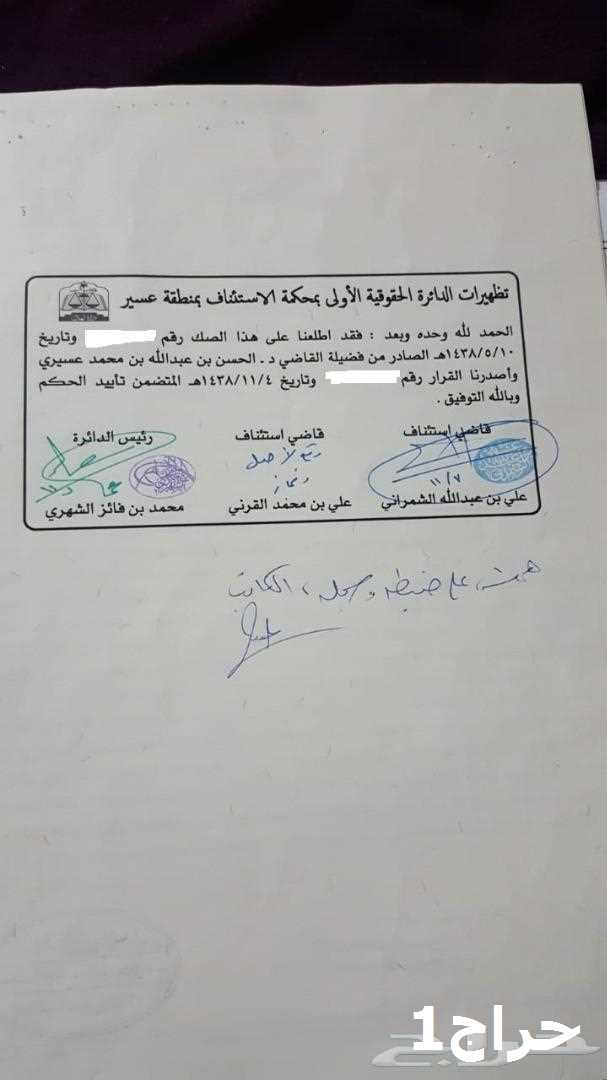 تظهيرات الدائرة الحقوقية الأولى بمحكمة الاستئناف بمنطقة عسير
الحمد لله وحده وبعد : فقد اطلعنا على هذا الصك رقم وتاريخ
١٤٣٨/٥/١٠هـ الصادر من فضيلة القاضي د. الحسن بن عبدالله بن محمد عسيري
وأصدرنا القرار رقم وتاريخ ١٤٣٨/١١/٤هـ المتضمن تأييد الحكم
وبالله التوفيق .
قاضي استئناف قاضي استئناف رئيس الدائرة
علي بن عبدالله الشمراني علي بن محمد القرني محمد بن فائز الشهري
حراج1